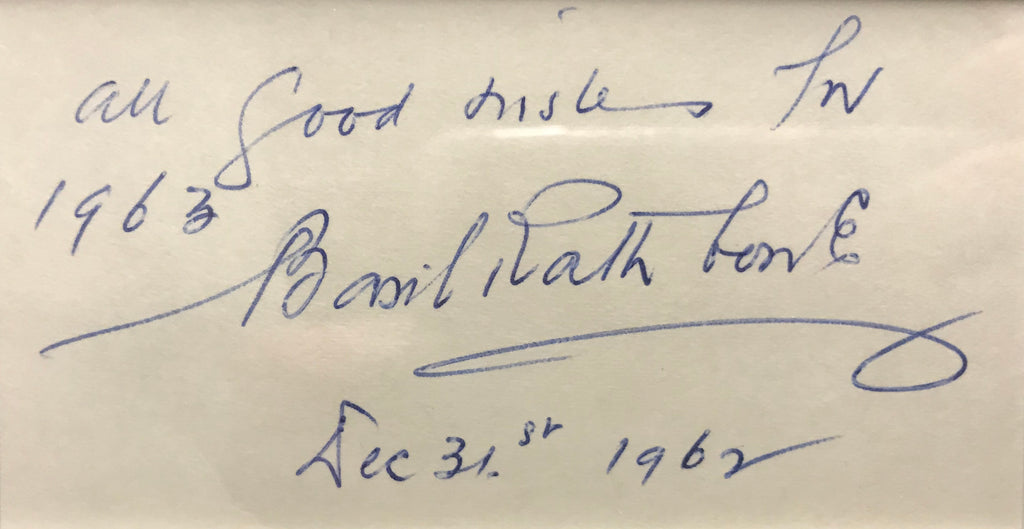 all good wishes for
1963
Basil Rathbone
Dec 31.st 1962